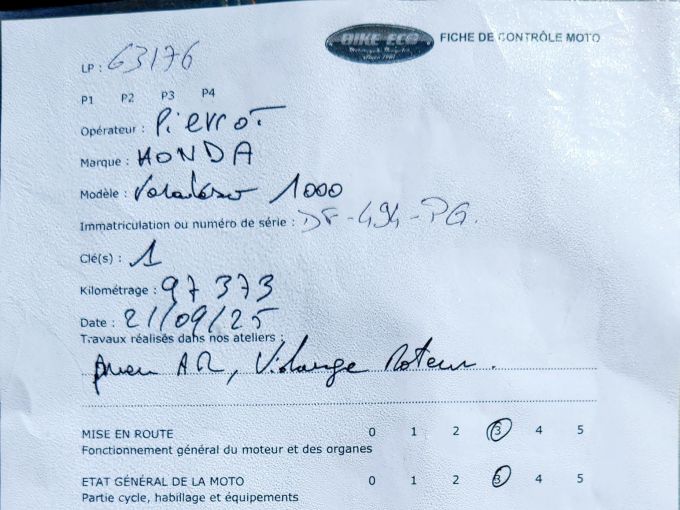 BIKE ECO
FICHE DE CONTRÔLE MOTO
LP : 63176
P1 P2 P3 P4
Opérateur : Pierrot
Marque : HONDA
Modèle : 1000
Immatriculation ou numéro de série : DF-494-PG.
Clé(s) : 1
Kilométrage : 97 373
Date : 21/09/25
Travaux réalisés dans nos ateliers :
Pneu AR, Vidange Moteur.
MISE EN ROUTE 0 1 2 3 4 5
Fonctionnement général du moteur et des organes
ETAT GÉNÉRAL DE LA MOTO 0 1 2 3 4 5
Partie cycle, habillage et équipements